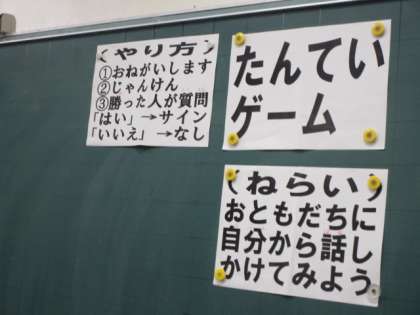 (やり方)
①おねがいします
②じゃんけん
③勝った人が質問
「はい」→サイン
「いいえ」→なし
たんてい
ゲーム
(ねらい)
おともだちに
自分から話し
かけてみよう